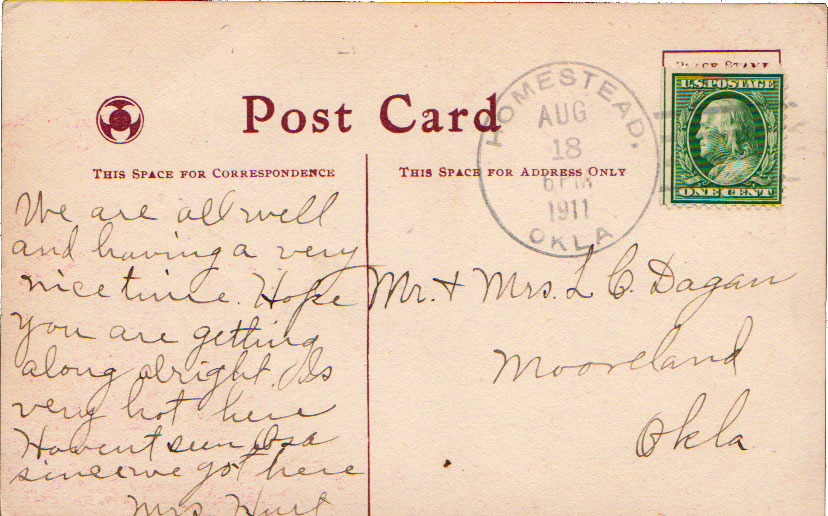 Post Card
THIS SPACE FOR CORRESPONDENCE
THIS SPACE FOR ADDRESS ONLY
HOMESTEAD,
AUG
18
6 PM
1911
OKLA
U.S. POSTAGE
ONE CENT
We are all well
and having a very
nice time. Hope
you are getting
along alright. Is
very hot here
Havent seen
since we got here
Mrs
Mr. & Mrs. L C. Dagan
Mooreland
Okla